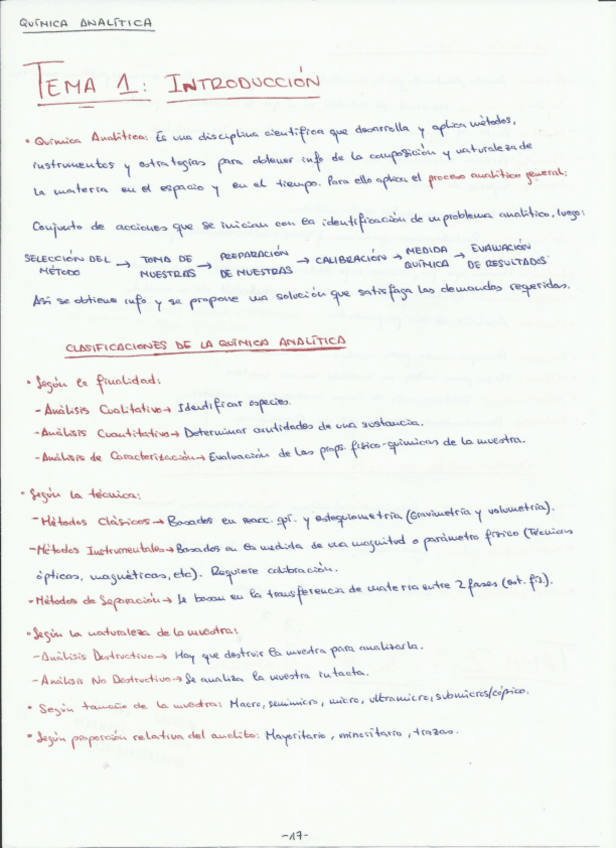 QUÍMICA ANALÍTICA
TEMA 1: INTRODUCCIÓN
• Química Analítica: Es una disciplina científica que desarrolla y aplica métodos,
instrumentos y estrategias para obtener info de la composición y naturaleza de
la materia en el espacio y en el tiempo. Para ello aplica el proceso analítico general:
Conjunto de acciones que se inician con la identificación de un problema analítico, luego:
SELECCIÓN DEL MÉTODO → TOMA DE MUESTRAS → PREPARACIÓN DE MUESTRAS → CALIBRACIÓN → MEDIDA QUÍMICA → EVALUACIÓN DE RESULTADOS
Así se obtiene info y se propone una solución que satisfaga las demandas requeridas.
CLASIFICACIONES DE LA QUÍMICA ANALÍTICA
• Según la finalidad:
- Análisis Cualitativo → Identificar especies.
- Análisis Cuantitativo → Determinar cantidades de una sustancia.
- Análisis de Caracterización → Evaluación de las props. físico-químicas de la muestra.
• Según la técnica:
- Métodos Clásicos → Basados en reacc. qí. y estequiometría (Gravimetría y volumetría).
- Métodos Instrumentales → Basados en la medida de una magnitud o parámetro físico (Técnicas
ópticas, magnéticas, etc). Requiere calibración.
- Métodos de Separación → Se basan en la transferencia de materia entre 2 fases (ext. fs).
• Según la naturaleza de la muestra:
- Análisis Destructivo → Hay que destruir la muestra para analizarla.
- Análisis No Destructivo → Se analiza la muestra intacta.
• Según tamaño de la muestra: Macro, semimicro, micro, ultramicro, submicroscópico.
• Según proporción relativa del analito: Mayoritario, minoritario, trazas.
-17-